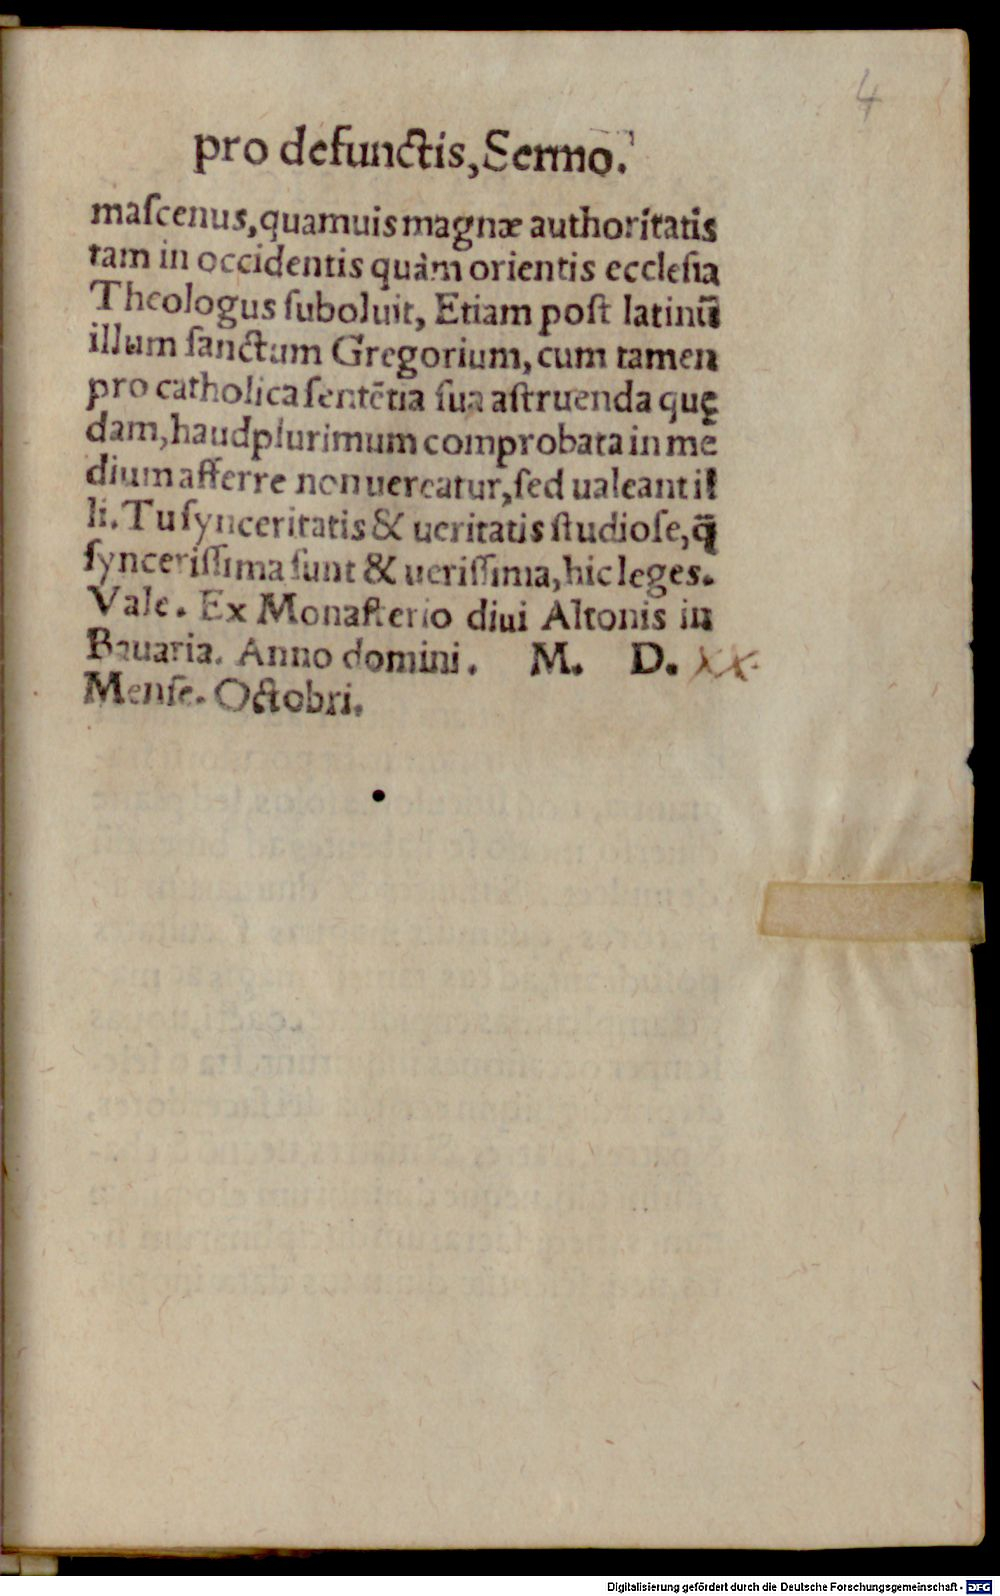 4
pro defunctis, Sermo.
maſcenus, quamuis magnæ authoritatis
tam in occidentis quàm orientis eccleſia
Theologus ſuboluit, Etiam poſt latinũ
illum ſanctum Gregorium, cum tamen
pro catholica ſentẽtia ſua aſtruenda quę
dam, haud plurimum comprobata in me
dium afferre non uereatur, ſed ualeant il
li. Tu ſynceritatis & ueritatis ſtudioſe, q̃
ſynceriſſima ſunt & ueriſſima, hic leges.
Vale. Ex Monaſterio diui Altonis in
Bauaria. Anno domini. M. D. XX.
Menſe. Octobri.
Digitalisierung gefördert durch die Deutsche Forschungsgemeinschaft - DFG